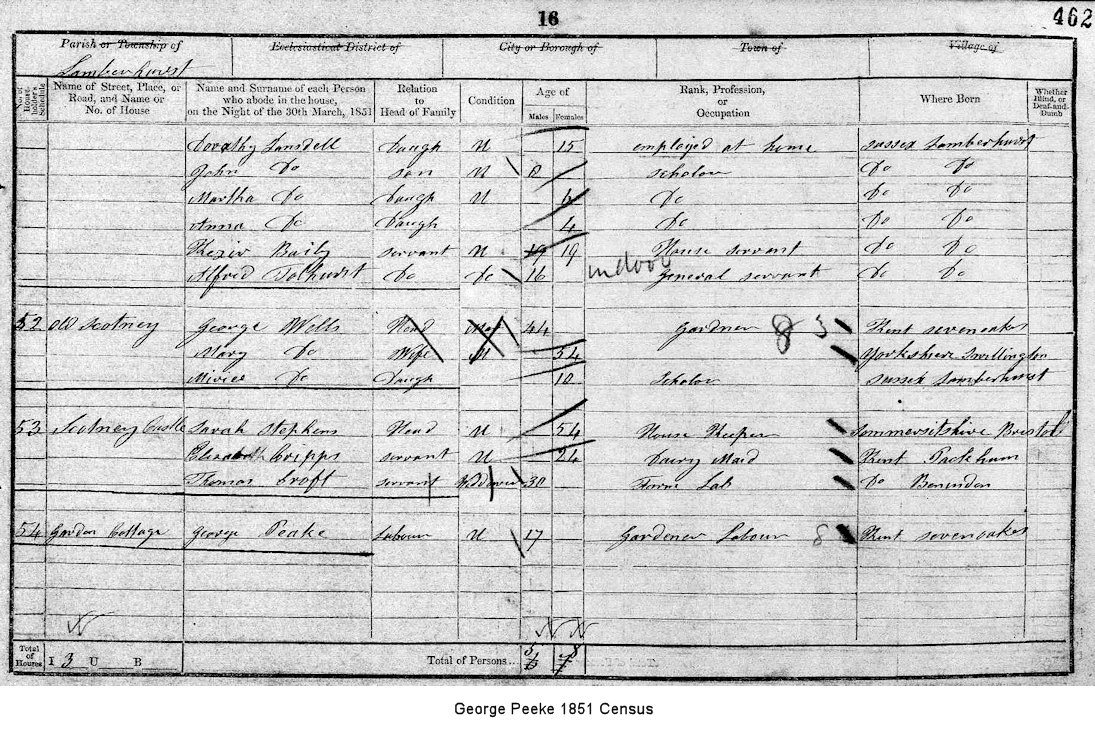 16
462
Parish or Township of Ecclesiastical District of City or Borough of Town of Village of
Lamberhurst
No. of Householder's Schedule Name of Street, Place, or Road, and Name or No. of House Name and Surname of each Person who abode in the house, on the Night of the 30th March, 1851 Relation to Head of Family Condition Age of Males Females Rank, Profession, or Occupation Where Born Whether Blind, or Deaf-and-Dumb
Dorathy Lansdell Daugh U 15 employed at home Sussex Lamberhurst
John Do son U 8 scholar Do Do
Martha Do Daugh U 6 Do Do Do
Anna Do Daugh 4 Do Do Do
Baily servant U 19 19 House servant Do Do
Alfred Tolhurst Do Do 16 indoor General servant Do Do
52 Old Scotney George Wells Head Mar 44 Gardner 8 3 Kent sevenoakes
Mary Do Wife M 54 Yorkshire Swillington
Do Daugh 10 Scholar Sussex Lamberhurst
53 Scotney Castle Sarah Stephens Head U 54 House Keeper Sommersetshire Bristol
Elizabeth Cripps servant U 24 Dairy Maid Kent Packham
Thomas Croft servant Widdower 30 Farm Lab Do Benenden
54 Garden Cottage George Peake Labour U 17 Gardener Labour 8 Kent sevenoakes
Total of Houses I 3 U B Total of Persons...
George Peeke 1851 Census